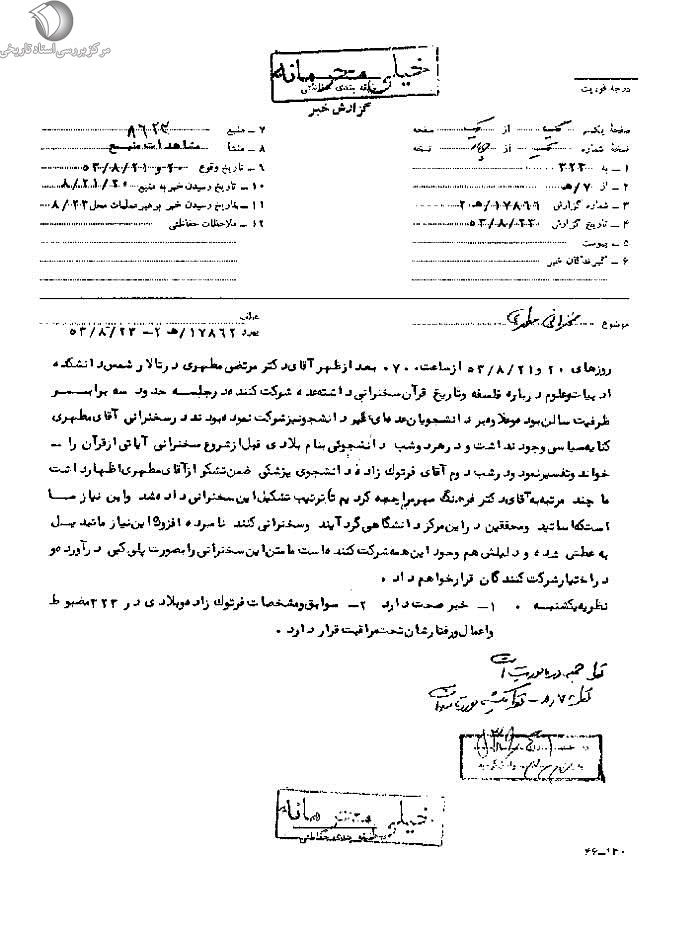 مرکز بررسی اسناد تاریخی
خیلی محرمانه
طبقه بندی حفاظتی
گزارش خبر
درجه فوریت
صفحه یکم از یک صفحه
نسخه شماره یک از چهار نسخه
۱ - به ۳۲۳
۲ - از ۷/هـ
۳ - شماره گزارش ۱۷۸۶۶/هـ ۲۰
۴ - تاریخ گزارش ۵۳/۸/۲۳
۵ - پیوست
۶ - گیرندگان خبر
۷ - منبع ۸۶۲۳
۸ - منشأ مشاهدات منبع
۹ - تاریخ وقوع ۲۰ و ۵۳/۸/۲۱
۱۰ - تاریخ رسیدن خبر به منبع ۸/۲۱/۲۰
۱۱ - تاریخ رسیدن خبر برهبر عملیات محل ۸/۲۳
۱۲ - ملاحظات حفاظتی
موضوع سخنرانی مطهری
عطف
پیرو ۱۷۸۶۲/هـ ۲ - ۵۳/۸/۲۳
روزهای ۲۰ و ۵۳/۸/۲۱ از ساعت ۰۷۰۰ بعد از ظهر آقای دکتر مرتضی مطهری در تالار شمس دانشکده
ادبیات و علوم درباره فلسفه و تاریخ قرآن سخنرانی داشته عده شرکت کننده در جلسه حدود سه برابر
ظرفیت سالن بود و علاوه بر دانشجویان عده ای غیر دانشجو نیز شرکت نموده بودند در سخنرانی آقای مطهری
کنایه سیاسی وجود نداشت و در هر دو شب دانشجوئی بنام بلادی قبل از شروع سخنرانی آیاتی از قرآن را -
خواند و تفسیر نمود و در شب دوم آقای فرتوک زاده دانشجوی پزشکی ضمن تشکر از آقای مطهری اظهار داشت
ما چند مرتبه به آقای دکتر فرهنگ مهر مراجعه کردیم تا ترتیب تشکیل این سخنرانی داده شد و این نیاز ما
است که اساتید و محققین در این مرکز دانشگاهی گرد آیند و سخنرانی کنند نامبرده افزود این نیاز مانند میل
به عطش شده و دلیلش هم وجود این همه شرکت کننده است ما متن این سخنرانی را بصورت پلی کپی درآورده و
در اختیار شرکت کنندگان قرار خواهم داد .
نظریه یکشنبه . ۱ - خبر صحت دارد ۲ - سوابق و مشخصات فرتوک زاده و بلادی در ۳۲۳ مضبوط
و اعمال و رفتارشان تحت مراقبت قرار دارد .
خیلی محرمانه
طبقه بندی حفاظتی
۴۶-۱۲۰